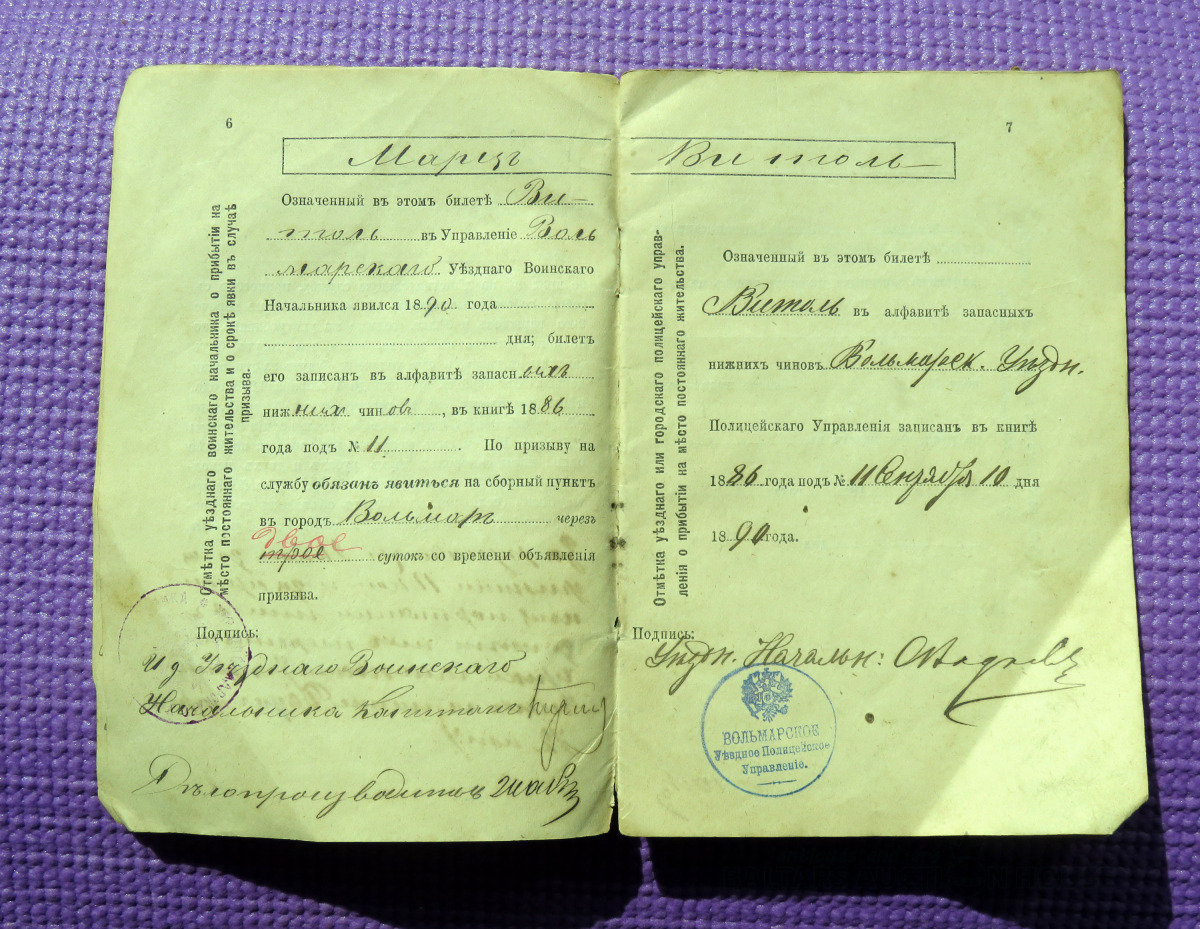 6
Марцъ
Отмѣтка уѣзднаго воинскаго начальника о прибытіи на
мѣсто постояннаго жительства и о срокѣ явки въ случаѣ
призыва.
Означенный въ этомъ билетѣ Ви-
толь въ Управленіе Воль
марскаго Уѣзднаго Воинскаго
Начальника явился 1890 года
дня; билетъ
его записанъ въ алфавитѣ запасныхъ
нижнихъ чиновъ, въ книгѣ 1886
года подъ № 11. По призыву на
службу обязанъ явиться на сборный пунктъ
въ городъ Вольмаръ черезъ
двое
трое сутокъ со времени объявленія
призыва.
Подпись:
И д Уѣзднаго Воинскаго
Начальника Капитанъ
Дѣлопроизводитель
7
Витоль
Отмѣтка уѣзднаго или городского полицейскаго управ-
ленія о прибытіи на мѣсто постояннаго жительства.
Означенный въ этомъ билетѣ
Витоль въ алфавитѣ запасныхъ
нижнихъ чиновъ Вольмарск. Уѣздн.
Полицейскаго Управленія записанъ въ книгѣ
1886 года подъ № 11 Сентября 10 дня
1890 года.
Подпись:
Уѣздн. Начальн:
ВОЛЬМАРСКОЕ
Уѣздное Полицейское
Управленіе.